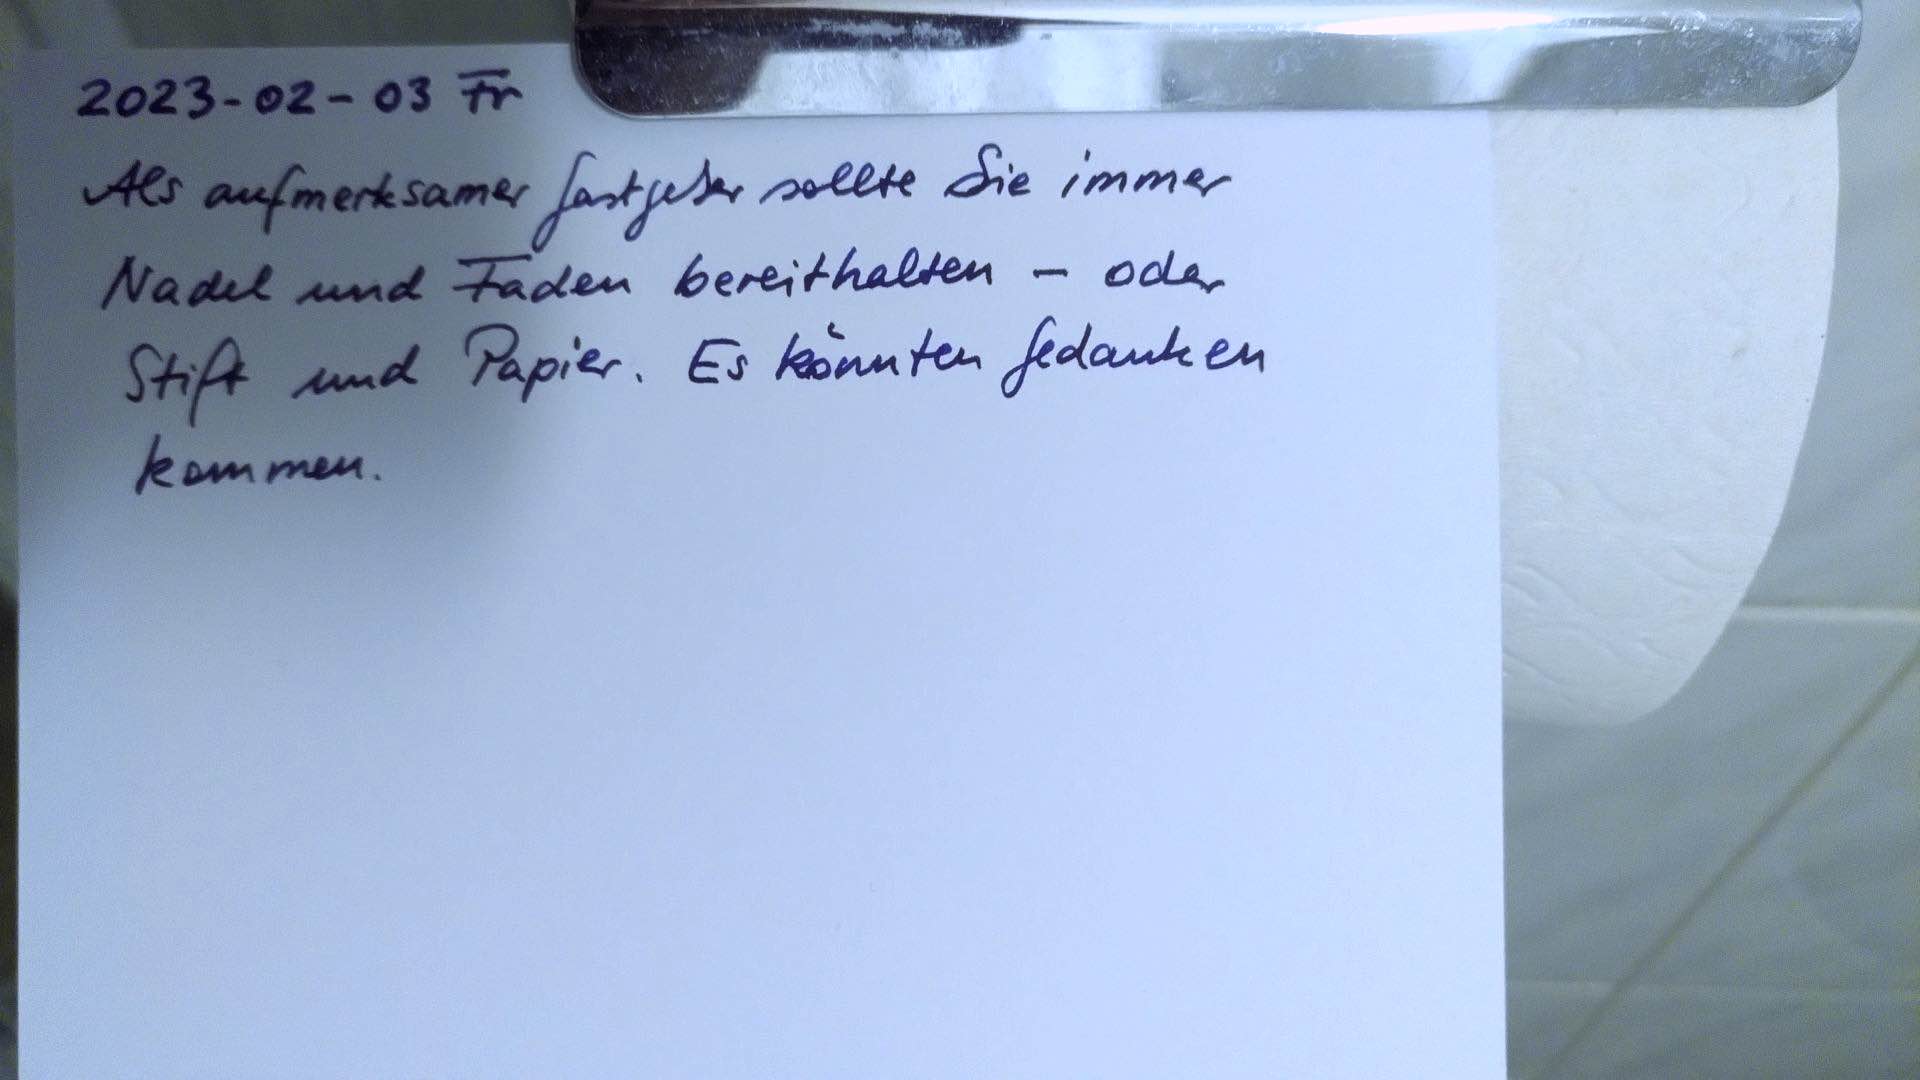 2023-02-03 Fr
Als aufmerksamer Gastgeber sollte Sie immer
Nadel und Faden bereithalten - oder
Stift und Papier. Es könnten Gedanken
kommen.